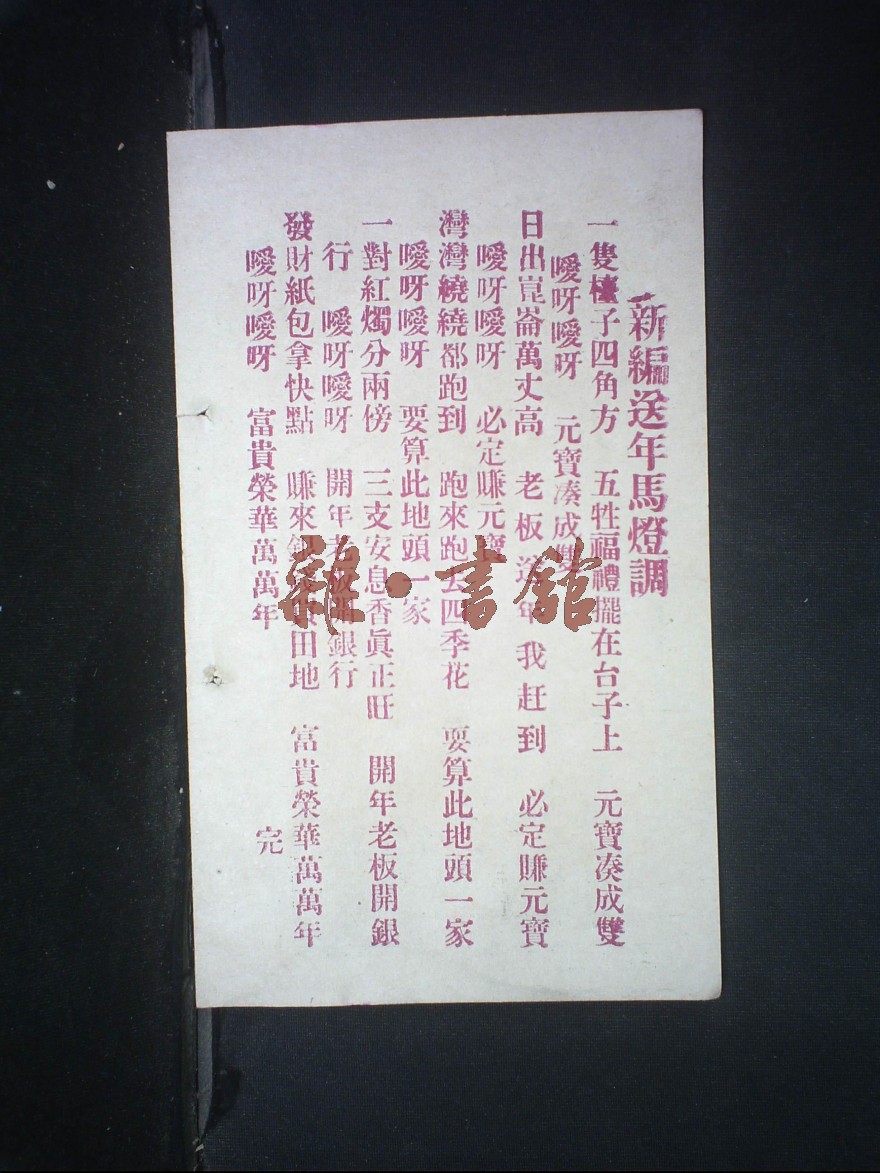 新編送年馬燈調
一隻檯子四角方　五牲福禮擺在台子上　元寶凑成雙
噯呀噯呀　元寶凑成雙
日出崑崙萬丈高　老板送年我赶到　必定賺元寶
噯呀噯呀　必定賺元寶
灣灣繞繞都跑到　跑來跑去四季花　要算此地頭一家
噯呀噯呀　要算此地頭一家
一對紅燭分兩傍　三支安息香眞正旺　開年老板開銀
行　噯呀噯呀　開年老板開銀行
發財紙包拿快點　賺來銀錢買田地　富貴榮華萬萬年
噯呀噯呀　富貴榮華萬萬年　完
雜·書館